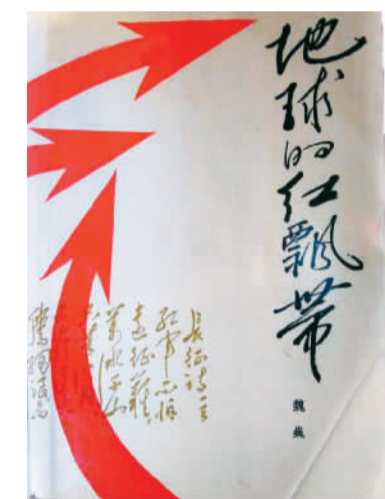 地球的红飘带
魏巍
长征诗一首
红军不怕
远征难
万水千山